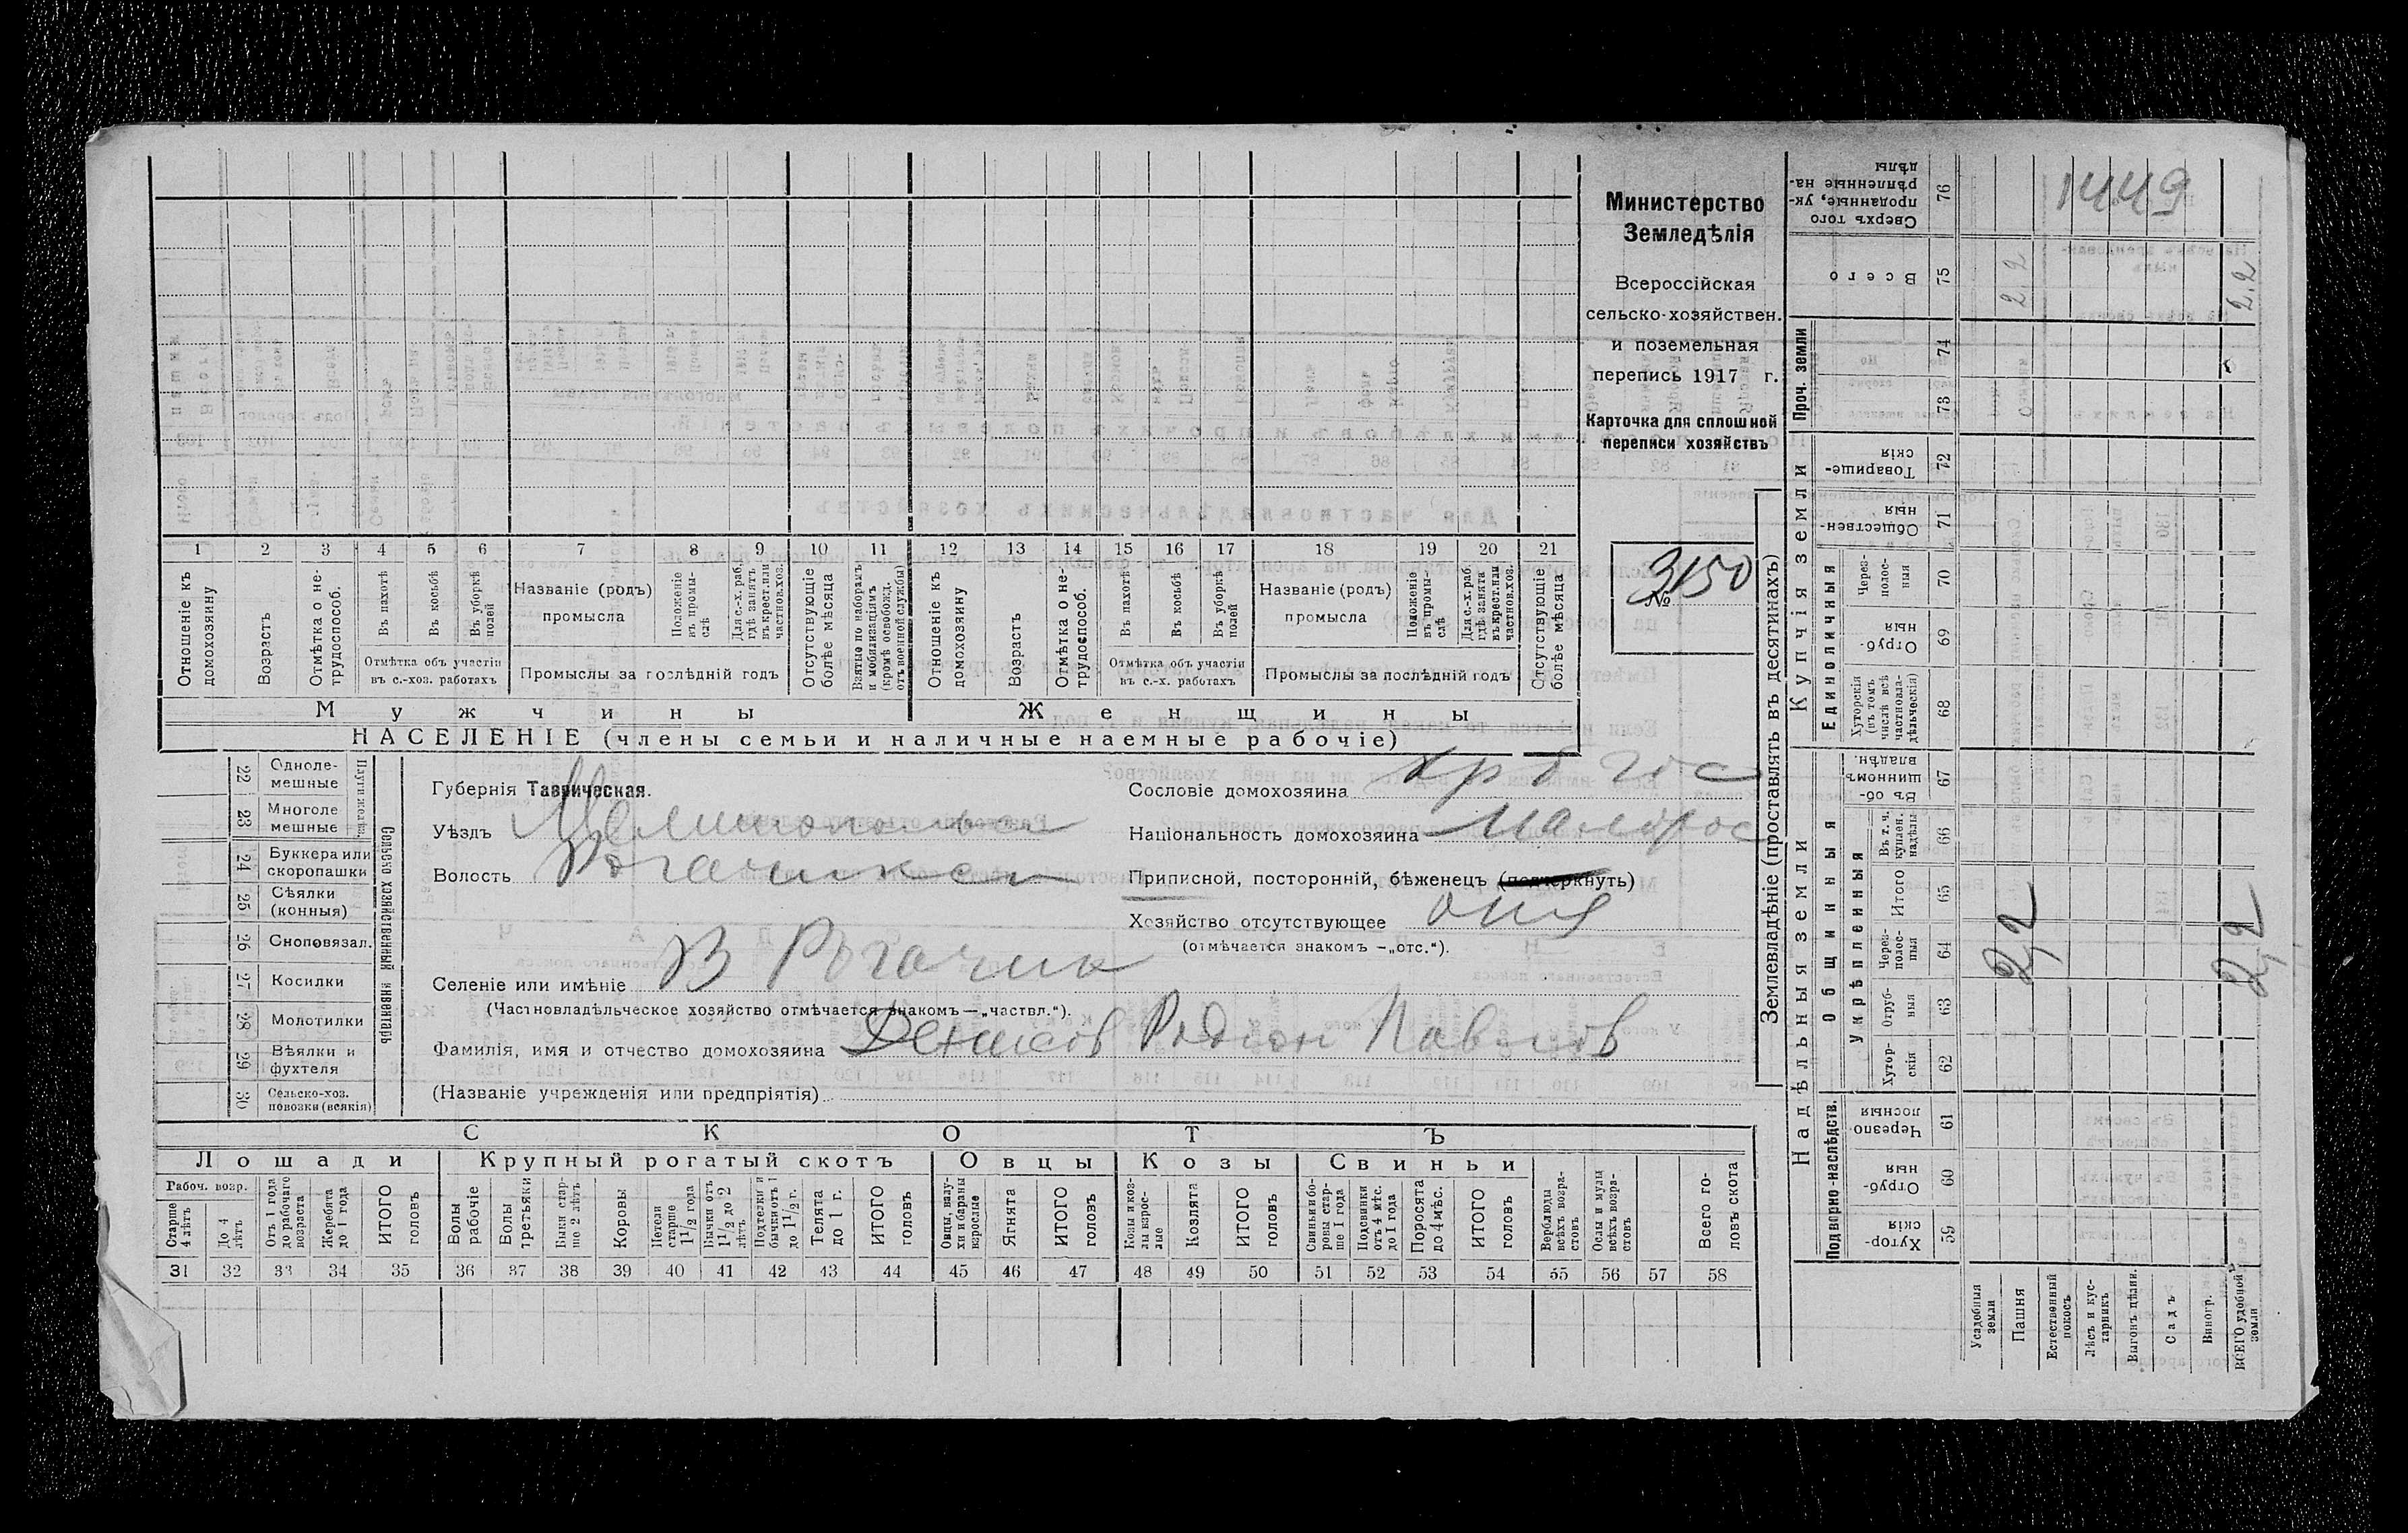 Министерство
Земледѣлія
Всероссійская
сельско-хозяйствен.
и поземельная
перепись 1917 г.
Карточка для сплошной
переписи хозяйствъ
№ 3150
1 2 3 4 5 6 7 8 9 10 11 12 13 14 15 16 17 18 19 20 21
Отношеніе къ домохозяину
Возрастъ
Отмѣтка о не-трудоспособ.
Въ пахотѣ
Въ косьбѣ
Въ уборкѣ полей
Отмѣтка объ участіи
въ с.-хоз. работахъ
Названіе (родъ)
промысла
Положеніе въ промы-слѣ
Для с.-х. раб. гдѣ занятъ въ крест. или частнов. хоз.
Промыслы за послѣдній годъ
Отсутствующіе болѣе мѣсяца
Взятые по наборамъ и мобилизаціямъ (кромѣ освобожд. отъ военной службы)
Отношеніе къ домохозяину
Возрастъ
Отмѣтка о не-трудоспособ.
Въ пахотѣ
Въ косьбѣ
Въ уборкѣ полей
Отмѣтка объ участіи
въ с.-х. работахъ
Названіе (родъ)
промысла
Положеніе въ промы-слѣ
Для с.-х. раб. гдѣ занята въ крест. или частнов. хоз.
Промыслы за послѣдній годъ
Отсутствующіе болѣе мѣсяца
Мужчины
Женщины
НАСЕЛЕНІЕ (члены семьи и наличные наемные рабочіе)
22 Одноле-мешные
23 Многоле мешные
24 Буккера или скоропашки
25 Сѣялки (конныя)
26 Сноповязал.
27 Косилки
28 Молотилки
29 Вѣялки и фухтеля
30 Сельско-хоз. повозки (всякія)
Сельско хозяйственный инвентарь
Губернія Таврическая.
Уѣздъ Мелитопольск
Волость Рогачикск
Селеніе или имѣніе В Рогачик
(Частновладѣльческое хозяйство отмѣчается знакомъ—„частвл.“).
Фамилія, имя и отчество домохозяина Денисов Родион Павлов
(Названіе учрежденія или предпріятія)
Сословіе домохозяина
Національность домохозяина малорос
Приписной, посторонній, бѣженецъ (подчеркнуть)
Хозяйство отсутствующее
(отмѣчается знакомъ —„отс.“).
СКОТЪ
Лошади
Крупный рогатый скотъ
Овцы
Козы
Свиньи
Рабоч. возр.
Старше 4 лѣтъ
До 4 лѣтъ
Отъ 1 года до рабочаго возраста
Жеребята до 1 года
ИТОГО головъ
Волы рабочіе
Волы третьяки
Быки стар-ше 2 лѣтъ
Коровы
Нетели старше 1 1/2 года
Бычки отъ 1 1/2 до 2 лѣтъ
Подтелки и бычки отъ 1 до 1 1/2 г.
Телята до 1 г.
ИТОГО головъ
Овцы, валу-хи и бараны взрослые
Ягнята
ИТОГО головъ
Козы и коз-лы взрос-лые
Козлята
ИТОГО головъ
Свиньи и бо-ровы стар-ше 1 года
Подсвинки отъ 4 мѣс. до 1 года
Поросята до 4 мѣс.
ИТОГО головъ
Верблюды всѣхъ возра-стовъ
Ослы и мулы всѣхъ возра-стовъ
Всего го-ловъ скота
31 32 33 34 35 36 37 38 39 40 41 42 43 44 45 46 47 48 49 50 51 52 53 54 55 56 57 58
Землевладѣніе (проставлять въ десятинахъ)
Надѣльныя земли
Купчія земли
Проч. земли
Подворно-наслѣдств.
Общинныя
Укрѣпленныя
Единоличныя
Хутор-скія 59
Отруб-ныя 60
Черезпо-лосныя 61
Хутор-скія 62
Отруб-ныя 63
Через-полос-ныя 64
Итого 65
Въ т. ч. куплен. надѣлы 66
Въ об-щинномъ владѣн. 67
Хуторскія (въ томъ числѣ всѣ частновла-дѣльческія) 68
Отруб-ныя 69
Через-полос-ныя 70
Обществен-ныя 71
Товарище-скія 72
73
74
Всего 75
Сверхъ того проданные, ук-рѣпленные на-дѣлы 76
Усадебныя земли
Пашня
Естественный покосъ
Лѣсъ и кус-тарникъ
Выгонъ цѣлин.
Садъ
Виногр.
ВСЕГО удобной земли
2,2
2,2
2,2
2,2
1449